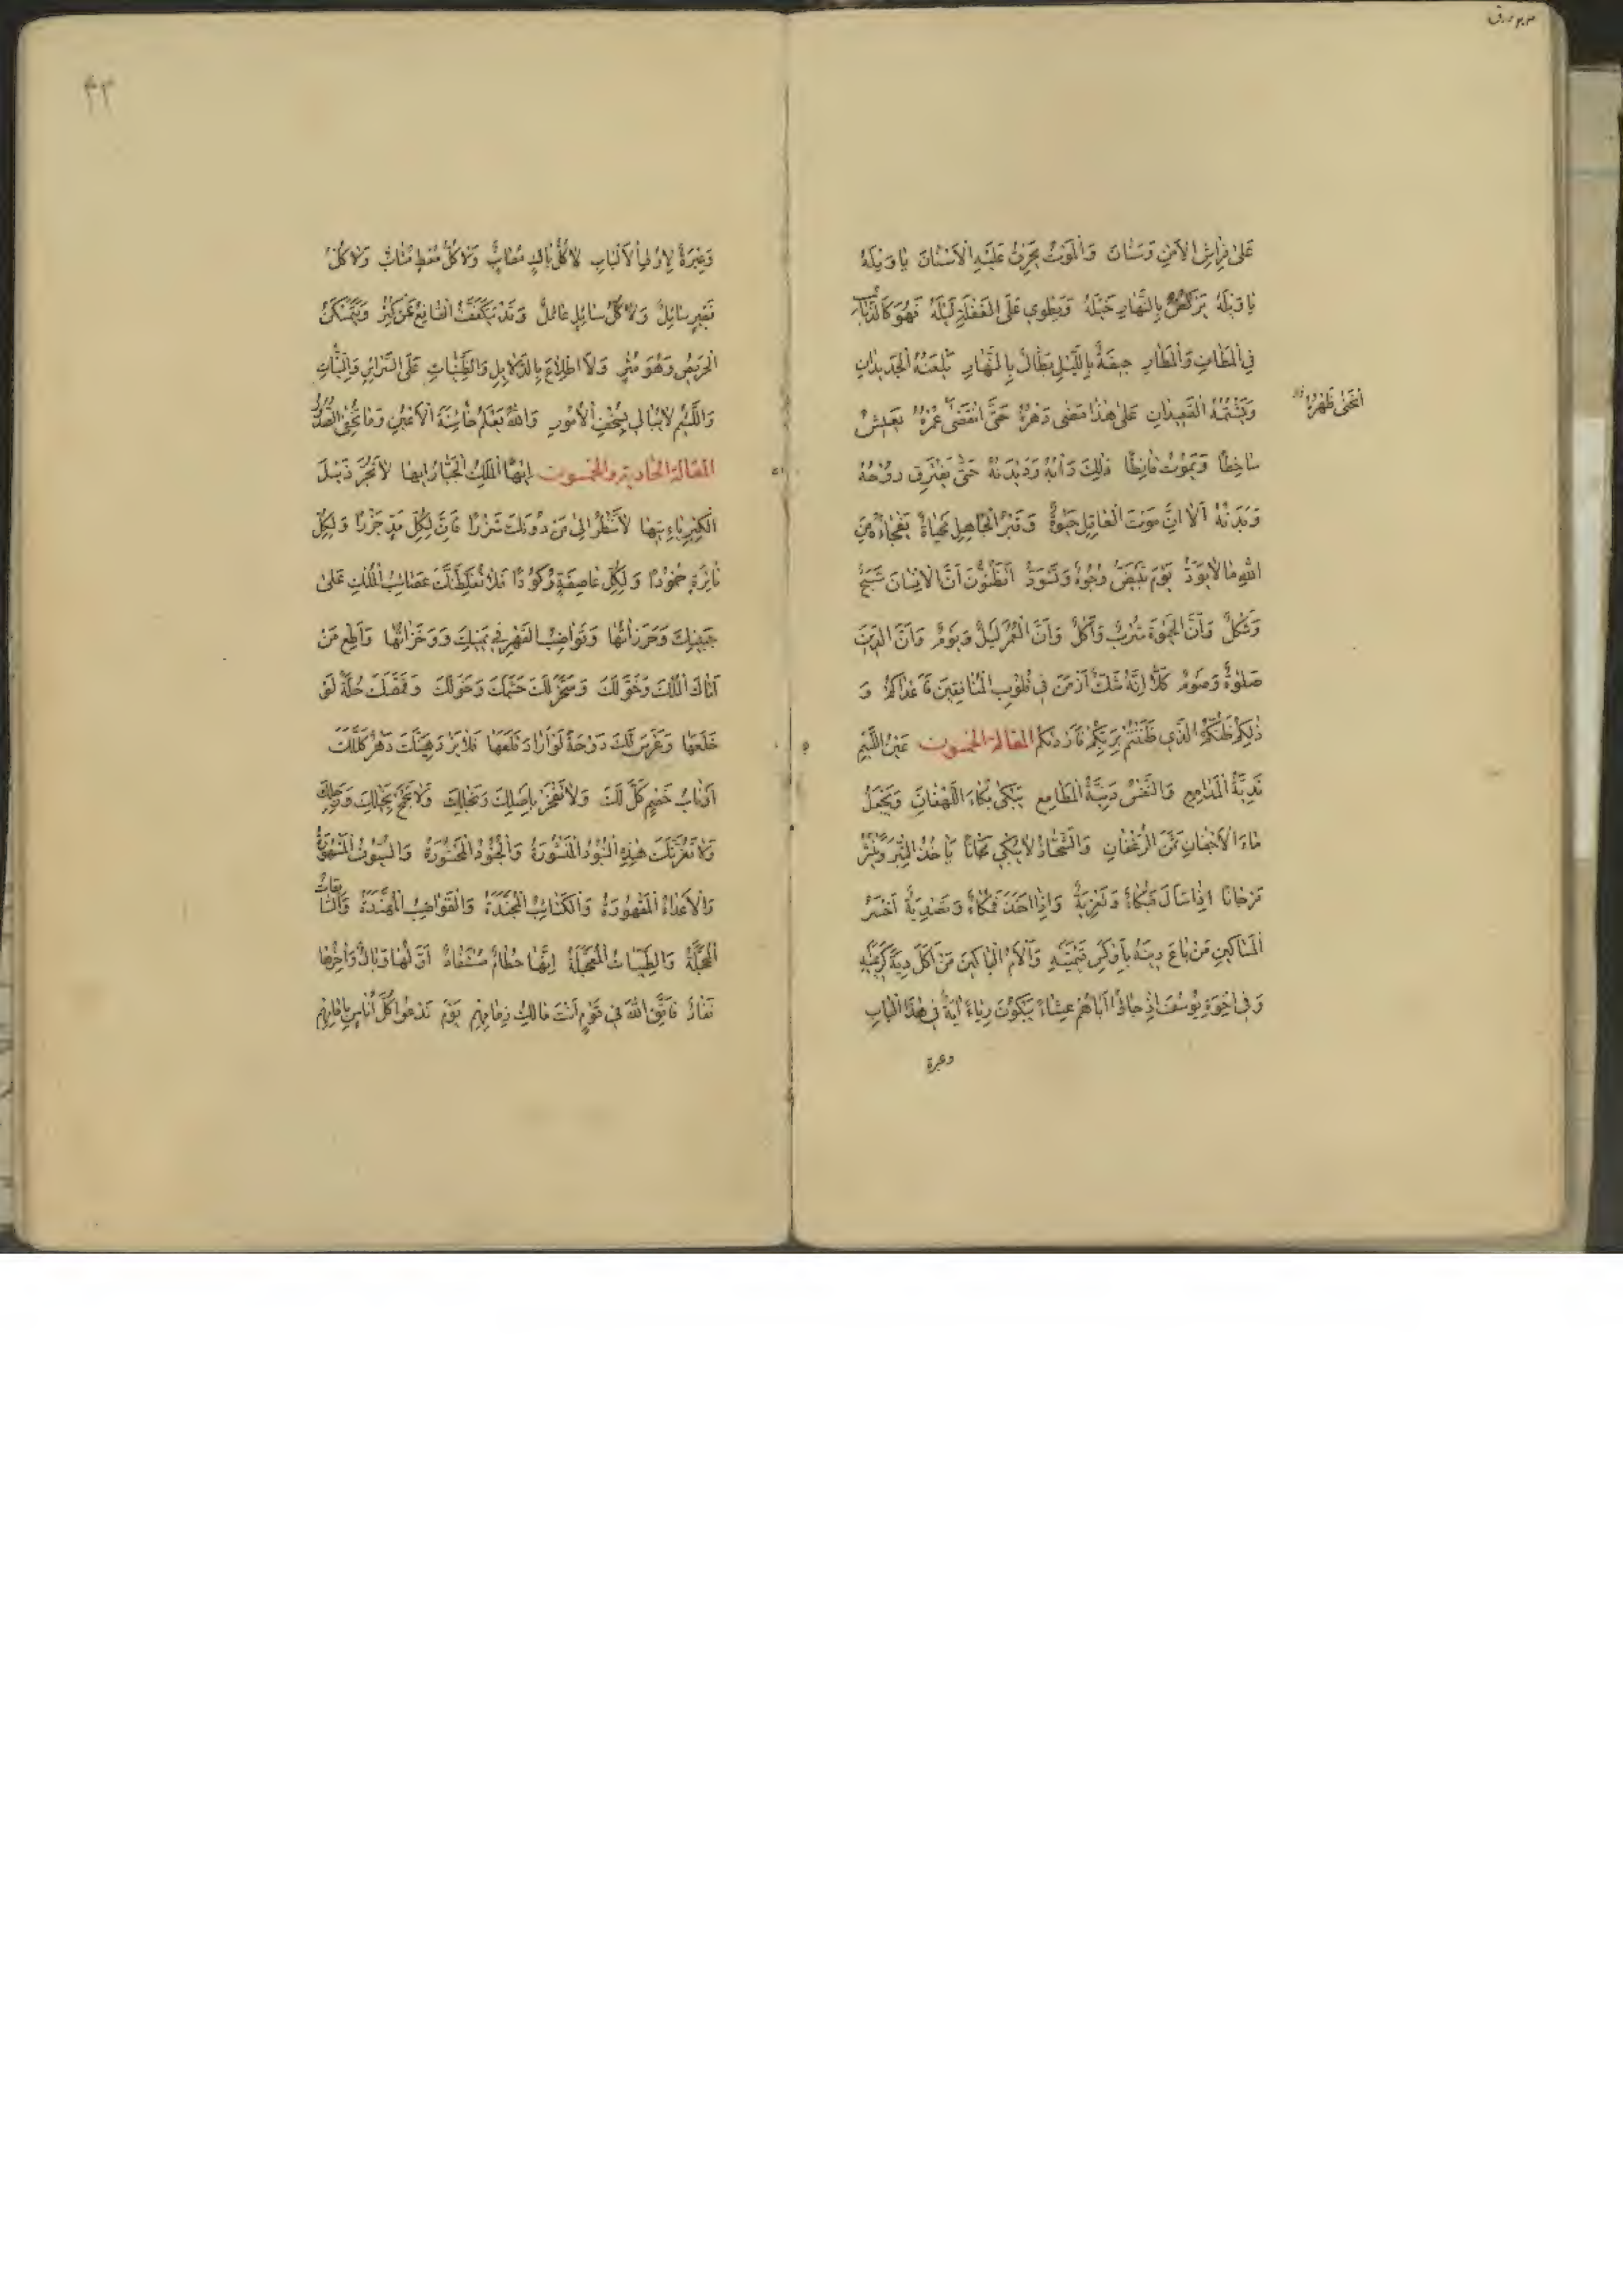 عَلىٰ فِرَاشِ الْاَمْنِ وَسْنَانَ وَالْمَوْتُ يَحْرِقُ عَلَيْهِ الْاَسْنَانَ يَا وَيْلَهُ
يَا وَيْلَهُ يَرْكُضُ بِالنَّهَارِ خَيْلَهُ وَيَطْوِي عَلَى الْغَفْلَةِ لَيْلَهُ فَهُوَ كَالذُّبَابِ
فِي الْمَطَانِ وَالْمَطَارِ جِيفَةٌ بِاللَّيْلِ بَطَّالٌ بِالنَّهَارِ يَلْعَنُهُ الْجَدِيدَانِ
وَيَشْتِمُهُ الْقَعِيدَانِ عَلىٰ هٰذَا مَضٰى دَهْرُهُ حَتَّى انْقَضٰى عُمْرُهُ يَعِيشُ
انْحَنٰى ظَهْرُهُ
سَاخِطًا وَيَمُوتُ قَانِطًا ذٰلِكَ دَأْبُهُ وَدَيْدَنُهُ حَتّٰى يَفْتَرِقَ رُوْحُهُ
وَبَدَنُهُ اَلَا اِنَّ مَوْتَ الْعَاقِلِ حَيٰوةٌ وَقَبْرُ الْجَاهِلِ مَحْيَاهُ يَفْجَاُهُ مِنَ
اللّٰهِ مَا لَا يَوَدُّ يَوْمَ تَبْيَضُّ وُجُوهٌ وَتَسْوَدُّ اَتَظُنُّونَ اَنَّ الْاِنْسَانَ شَبَحٌ
وَشَكْلٌ وَاَنَّ الْحَيٰوةَ شُرْبٌ وَاَكْلٌ وَاَنَّ الْعُمْرَ لَيْلٌ وَيَوْمٌ وَاَنَّ الدِّينَ
صَلٰوةٌ وَصَوْمٌ كَلَّا اِنَّهُ شَكٌّ اَزْمَنَ فِي قُلُوبِ الْمُنَافِقِينَ فَاَعْدَاكُمْ وَ
ذٰلِكُمْ ظَنُّكُمُ الَّذِي ظَنَنْتُمْ بِرَبِّكُمْ فَاَرْدٰىكُمْ المقالة الخمسون عَيْنُ اللَّئِيمِ
نَدِيَّةُ الْمَدَامِعِ وَالنَّفْسُ دَنِيَّةُ الْمَطَامِعِ يَبْكِي بُكَاءَ اللَّهْفَانِ وَيَجْعَلُ
مَاءَ الْاَجْفَانِ ثَمَنَ الرُّغْفَانِ وَالشَّحَّاذُ لَا يَبْكِي مَجَّانًا يَأْخُذُ التِّبْرَ وَيَنْثُرُ
مَرْجَانًا اِذَا سَاَلَ فَبُكَاءٌ وَتَعْزِيَةٌ وَاِذَا اَخَذَ فَمُكَاءٌ وَتَصْدِيَةٌ اَخْسَرُ
الْمَسَاكِينِ مَنْ بَاعَ دِينَهُ بِاَوْكَسِ قِيْمَتَيْهِ وَاَلْاَمُ الْبَاكِينَ مَنْ اَكَلَ دِيَةَ كَرِيمَتَيْهِ
وَفِي اِخْوَةِ يُوسُفَ اِذْ جَاؤُا اَبَاهُمْ عِشَاءً يَبْكُونَ رِيَاءً اٰيَةٌ فِي هٰذَا الْبَابِ
وعبرة
٤٣
وَعِبْرَةٌ لِاُولِي الْاَلْبَابِ لَا كُلُّ بَالِدٍ مُعَابٌ وَلَا كُلُّ مُعْطٍ مُثَابٌ وَلَا كُلُّ
فَقِيرٍ سَائِلٌ وَلَا كُلُّ سَائِلٍ عَائِلٌ وَقَدْ يَتَكَفَّفُ الْقَانِعُ عَنْ كَنْزٍ وَيَتَمَسْكَنُ
الْحَرِيصُ وَهُوَ مُثْرٍ وَلَا اطِّلَاعَ بِالدَّلَايِلِ وَالظَّنِّيَّاتِ عَلَى السَّرَائِرِ وَالنِّيَّاتِ
وَاللَّئِيمُ لَا يُبَالِي بِسُخْفِ الْاُمُورِ وَاللّٰهُ يَعْلَمُ خَائِنَةَ الْاَعْيُنِ وَمَا تُخْفِي الصُّدُورُ
المقالة الحادية والخمسون اَيُّهَا الْمَلِكُ الْجَبَّارُ اِيهًا لَا تَجُرَّ ذَيْلَ
الْكِبْرِيَاءِ تِيهًا لَا تَنْظُرْ اِلىٰ مَنْ دُونَكَ شَزْرًا فَاِنَّ لِكُلِّ مَدٍّ جَزْرًا وَلِكُلِّ
نَائِرَةٍ خُمُودًا وَلِكُلِّ عَاصِفَةٍ رُكُودًا فَلَا تُغَلِّطَنَّكَ عَصَائِبُ الْمُلْكِ عَلىٰ
جَبِينِكَ وَخَرَزَاتُهَا وَقَوَاضِبُ الْقَهْرِ فِي يَمِينِكَ وَوَخَزَاتُهَا وَاَطِعْ مَنْ
اٰتَاكَ الْمُلْكَ وَخَوَّلَكَ وَسَخَّرَ لَكَ حَشَمَكَ وَخَوَلَكَ وَقَمَّصَكَ حُلَّةً لَوْ
خَلَعَهَا وَغَرَسَ لَكَ دَوْحَةً لَوْ اَرَادَ قَلَعَهَا فَلَا يَزْدَهِيَنَّكَ دَهْرٌ كَلَّلَكَ
اَوْ نَابُ خَصْمٍ كَلَّ لَكَ وَلَا تَفْخَرْ بِاَصْلِكَ وَنَجْلِكَ وَلَا تَجْمَحْ بِخَيْلِكَ وَرَجِلِكَ
وَلَا تَغُرَّنَّكَ هٰذِهِ الْبُنُودُ الْمَنْشُورَةُ وَالْجُنُودُ الْمَحْشُورَةُ وَالسُّيُوفُ الْمَشْهُورَةُ
وَالْاَعْدَاءُ الْمَقْهُورَةُ وَالْكَتَائِبُ الْمُجَنَّدَةُ وَالْقَوَاضِبُ الْمُهَنَّدَةُ وَالسَّابِقَاتُ
الْمُحَجَّلَةُ وَالطَّيِّبَاتُ الْمُعَجَّلَةُ اِنَّهَا حُطَامٌ مُسْتَفَادٌ اَوَّلُهَا وَبَالٌ وَاٰخِرُهَا
نَفَادٌ فَاتَّقِ اللّٰهَ فِي قَوْمٍ اَنْتَ مَالِكُ زِمَامِهِمْ يَوْمَ نَدْعُوا كُلَّ اُنَاسٍ بِاِمَامِهِمْ